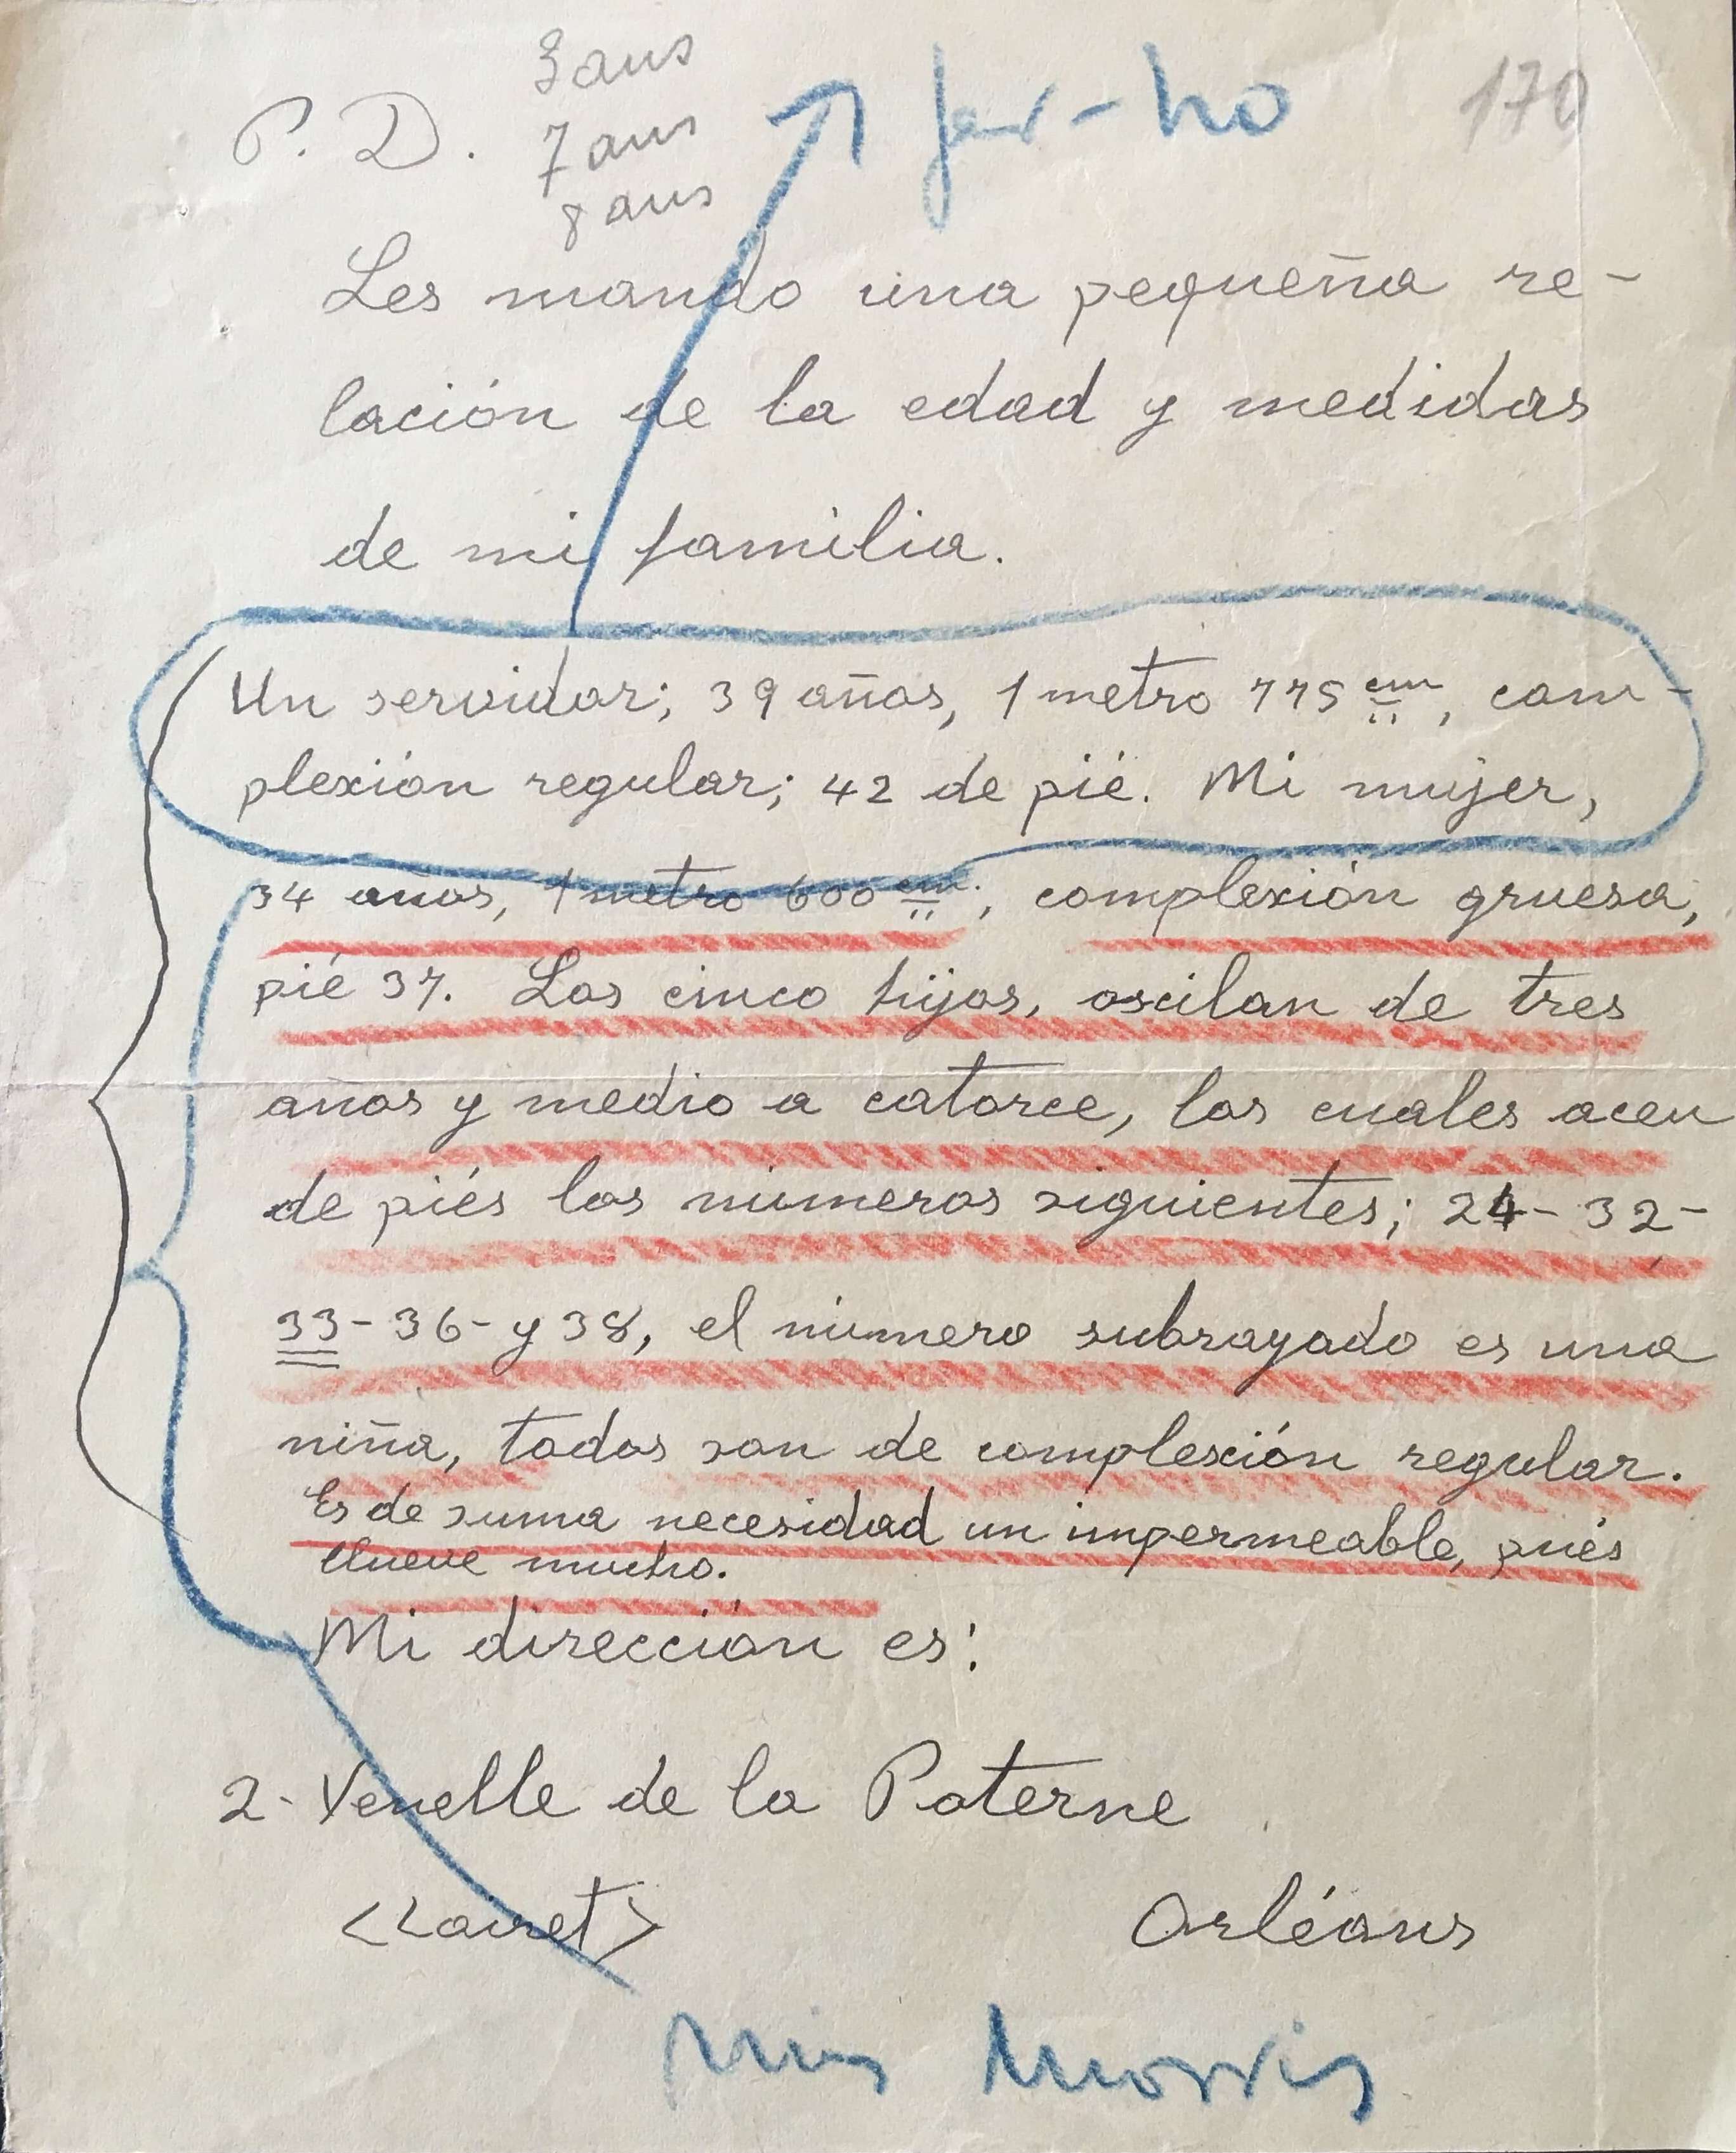 3 ans
P. D.
7 ans
8 ans
170
Les mando una pequeña re-
lación de la edad y medidas
de mi familia.
Un servidor; 39 años, 1 metro 775 cm, com-
plexión regular; 42 de pié. Mi mujer,
34 años, 1 metro 600 cm; complexión gruesa,
pié 37. Los cinco hijos, oscilan de tres
años y medio a catorce, los cuales acen
de piés los números siguientes; 24-32-
33-36-y 38, el número subrayado es una
niña, todos son de complexión regular.
Es de suma necesidad un impermeable, pués
llueve mucho.
Mi dirección es:
2- Venelle de la Poterne
<Loiret> Orléans
Miss Morris